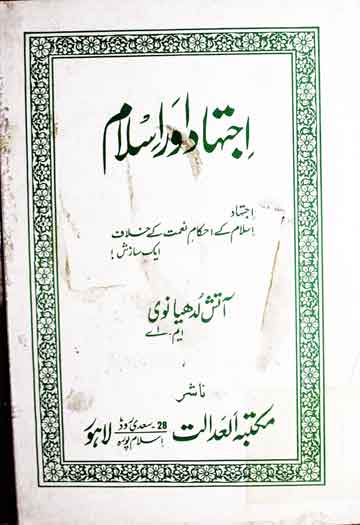 اجتہاد اور اسلام
اجتہاد
اسلام کے احکامِ نعمت کے خلاف
ایک سازش!
آتش لُدھیانوی
ایم۔ اے
ناشر
مکتبۃ العدالت 28۔ سعدی روڈ اسلام پورہ لاہور